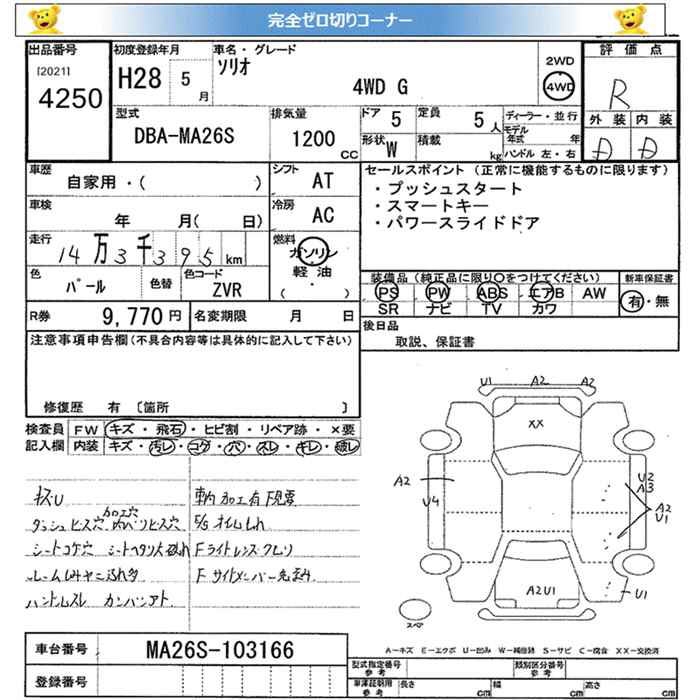 完全ゼロ切りコーナー
出品番号
[2021]
4250
初度登録年月
H28 5 月
車名・グレード
ソリオ
4WD G
2WD
4WD
評価点
R
外装 内装
D D
型式
DBA-MA26S
排気量
1200 CC
ドア 5
定員 5 人
形状 W
積載 kg
ディーラー・並行
モデル年式 年
ハンドル 左・右
車歴
自家用・( )
シフト AT
車検
年 月( 日)
冷房 AC
走行
14万3千395 km
燃料
ガソリン
軽油
( ・ )
色 パール
色替
色コード ZVR
R券 9,770 円
名変期限 月 日
セールスポイント(正常に機能するものに限ります)
・プッシュスタート
・スマートキー
・パワースライドドア
装備品(純正品に限り○をつけてください)
PS PW ABS エアB AW
SR ナビ TV カワ
新車保証書
有・無
後日品
取説、保証書
注意事項申告欄(不具合内容等は具体的に記入して下さい)
修復歴 有 〔箇所 〕
検査員記入欄
FW キズ・飛石・ヒビ割・リペア跡・×要
内装 キズ・汚レ・コゲ・穴・スレ・キレ・破レ
キズU
加工穴
ダッシュビス穴 内ベリビス穴
シートコゲ穴 シートヘタリ大破れ
ルームしみヤニ汚れ多
ハンドルスレ カンバンアト
車内加工有 F見要
F/S オイルもれ
Fライトレンズクモリ
F サイドメンバー先歪み
U1 A2 A2
XX
A2
U4
U2
A3
A2
U1
A2U1
U1
スペア
A-キズ E-エクボ U-凹み W-補修跡 S-サビ C-腐食 XX-交換済
車台番号 MA26S-103166
登録番号
型式指定番号 参考
類別区分番号 参考
車庫証明用 参考
長さ cm 幅 cm 高さ cm